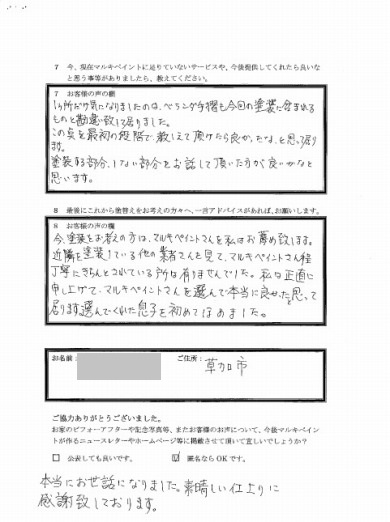 7 今、現在マルキペイントに足りていないサービスや、今後提供してくれたら良いな
と思う事等がありましたら、教えてください。
7 お客様の声の欄
1ヶ所だけ気になりましたのは、ベランダ手摺も今回の塗装に含まれる
ものと勘違い致して居りました。
この点を最初の段階で、教えて頂けたら良かったな、と思って居り
ます。
塗装する部分、しない部分をお話して頂いた方が良いかなと
思います。
8 最後にこれから塗替えをお考えの方々へ、一言アドバイスがあれば、お願いします。
8 お客様の声の欄
今、塗装をお考えの方は、マルキペイントさんを私はお薦め致します。
近隣を塗装している他の業者さんを見て、マルキペイントさん程
丁寧にきちんとされている所は有りませんでした。私は正直に
申し上げて、マルキペイントさんを選んで本当に良かったと思って
居ります。選んでくれた息子を初めてほめました。
お名前:
ご住所:
草加市
ご協力ありがとうございました。
お家のビフォーアフターや記念写真等、またお客様のお声について、今後マルキペイン
トが作るニュースレターやホームページ等に掲載させて頂いて宜しいでしょうか?
□ 公表しても良いです。 ☑ 匿名ならOKです。
本当にお世話になりました。素晴しい仕上りに
感謝致しております。